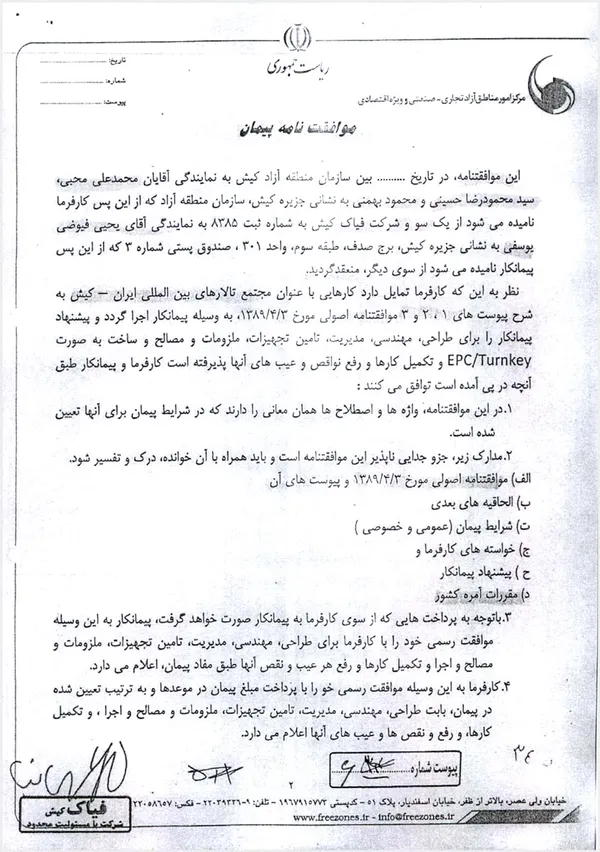 ریاست جمهوری
تاریخ:
شماره:
پیوست:
مرکز امور مناطق آزاد تجاری - صنعتی و ویژه اقتصادی
موافقت نامه پیمان
این موافقتنامه، در تاریخ .......... بین سازمان منطقه آزاد کیش به نمایندگی آقایان محمدعلی محبی،
سید محمودرضا حسینی و محمود بهمنی به نشانی جزیره کیش، سازمان منطقه آزاد که از این پس کارفرما
نامیده می شود از یک سو و شرکت فیاک کیش به شماره ثبت ۸۳۸۵ به نمایندگی آقای یحیی فیوضی
یوسفی به نشانی جزیره کیش، برج صدف، طبقه سوم، واحد ۳۰۱ ، صندوق پستی شماره ۳ که از این پس
پیمانکار نامیده می شود از سوی دیگر، منعقدگردید.
نظر به این که کارفرما تمایل دارد کارهایی با عنوان مجتمع تالارهای بین المللی ایران – کیش به
شرح پیوست های ۱ ، ۲ و ۳ موافقتنامه اصولی مورخ ۱۳۸۹/۴/۳، به وسیله پیمانکار اجرا گردد و پیشنهاد
پیمانکار را برای طراحی، مهندسی، مدیریت، تامین تجهیزات، ملزومات و مصالح و ساخت به صورت
EPC/Turnkey و تکمیل کارها و رفع نواقص و عیب های آنها پذیرفته است کارفرما و پیمانکار طبق
آنچه در پی آمده است توافق می کنند :
۱.در این موافقتنامه، واژه ها و اصطلاح ها همان معانی را دارند که در شرایط پیمان برای آنها تعیین
شده است.
۲.مدارک زیر، جزو جدایی ناپذیر این موافقتنامه است و باید همراه با آن خوانده، درک و تفسیر شود.
الف) موافقتنامه اصولی مورخ ۱۳۸۹/۴/۳ و پیوست های آن
ب) الحاقیه های بعدی
ت) شرایط پیمان (عمومی و خصوصی )
ج) خواسته های کارفرما و
ح ) پیشنهاد پیمانکار
د) مقررات آمره کشور
۳.باتوجه به پرداخت هایی که از سوی کارفرما به پیمانکار صورت خواهد گرفت، پیمانکار به این وسیله
موافقت رسمی خود را با کارفرما برای طراحی، مهندسی، مدیریت، تامین تجهیزات، ملزومات و
مصالح و اجرا و تکمیل کارها و رفع هر عیب و نقص آنها طبق مفاد پیمان، اعلام می دارد.
۴.کارفرما به این وسیله موافقت رسمی خو را با پرداخت مبلغ پیمان در موعدها و به ترتیب تعیین شده
در پیمان، بابت طراحی، مهندسی، مدیریت، تامین تجهیزات، ملزومات و مصالح و اجرا ، و تکمیل
کارها، و رفع و نقص ها و عیب های آنها اعلام می دارد.
۳۴
پیوست شماره
۲
فیاک کیش
شرکت با مسئولیت محدود
خیابان ولی عصر، بالاتر از ظفر، خیابان اسفندیار، پلاک ۵۱ - کدپستی ۱۹۶۷۹۱۵۷۷۳ - تلفن: ۹-۲۲۰۳۹۳۲۶ - فکس: ۲۲۰۵۸۶۵۷
www.freezones.ir - info@freezones.ir